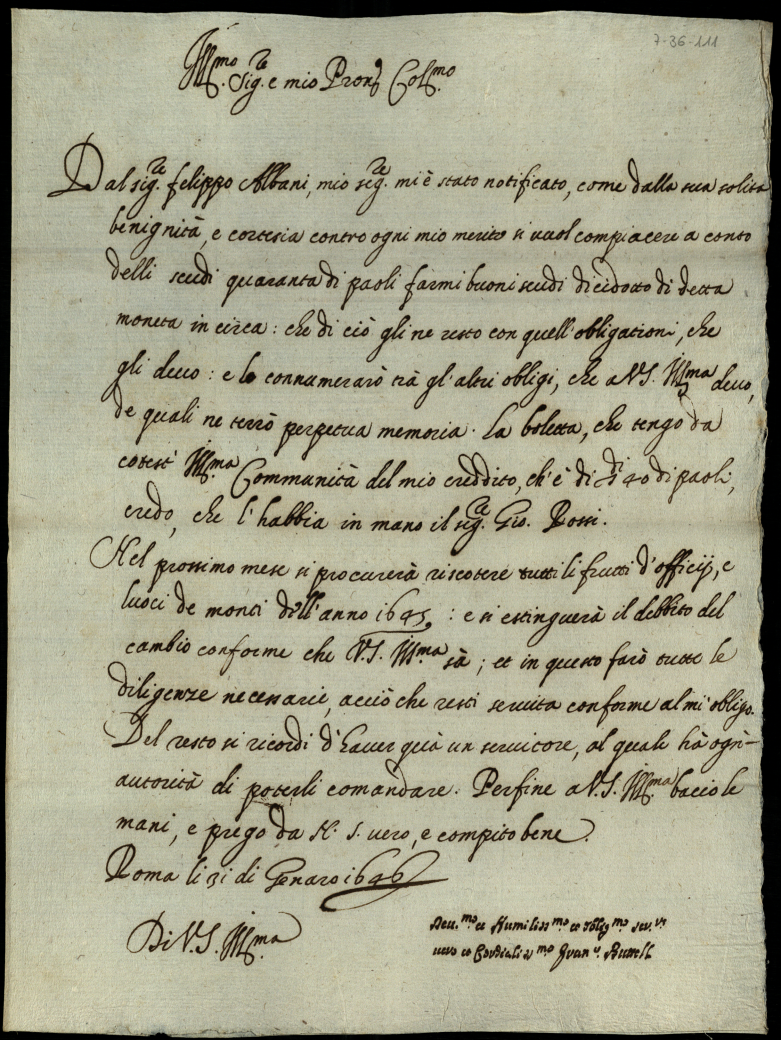 7-36-111
Ill.mo Sig.re e mio Pron. Col.mo
Dal sig.re felippo Albani, mio sig.re mi è stato notificato, come dalla sua solita
benignità, e cortesia contro ogni mio merito si vuol compiacere a conto
delli scudi quaranta di paoli farmi buoni scudi dicidotto di detta
moneta in circa: che di ciò gli ne resto con quell'obligationi, che
gli devo: e le connumerarò trà gl'altri obligi, che a V.S. Ill.ma devo,
de quali ne terrò perpetua memoria. La boletta, che tengo da
cotest' Ill.ma Communità del mio creddito, ch'è di 40 di paoli,
credo, che l'habbia in mano il sig.re Gio. Rossi.
Nel prossimo mese si procurerà riscotere tutti li frutti d'officij, e
luoci de monti dell'anno 1645: e si estinguerà il debbito del
cambio conforme che V.S. Ill.ma sà; et in questo farò tutte le
diligenze necessarie, acciò che resti servita conforme al mi' obligo.
Del resto si ricordi d'haver quà un servitore, al quale hà ogni
autorità di poterli comandare. Perfine a V.S. Ill.ma bacio le
mani, e prego da N. S. vero, e compito bene.
Roma li 31 di Genaro 1646
Di V.S. Ill.ma
Dev.mo et Humiliss.mo et oblig.mo ser.re
vero et Cordialiss.mo